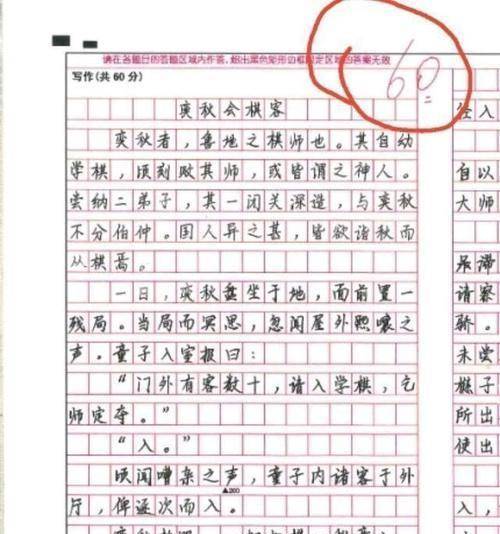 请在各题目的答题区域内作答,超出黑色矩形边框限定区域的答案无效
60
写作(共 60 分)
奕秋会棋客
奕秋者,鲁地之棋师也。其自幼
学棋,顷刻败其师,或皆谓之神人。
尝纳二弟子,其一闭关深造,与奕秋
不分伯仲。国人异之甚,皆欲诣秋而
从棋焉。
一日,奕秋盘坐于地,面前置一
残局。当局而冥思,忽闻屋外熙嚷之
声。童子入室报曰:
“门外有客数十,请入学棋,乞
师定夺。”
“入。”
顷闻嘈杂之声,童子内诸客于外
▲200
厅,俾逐次而入。
全入
自以
大师
请察
骄。
未尝
樵子
所出
使出
入,